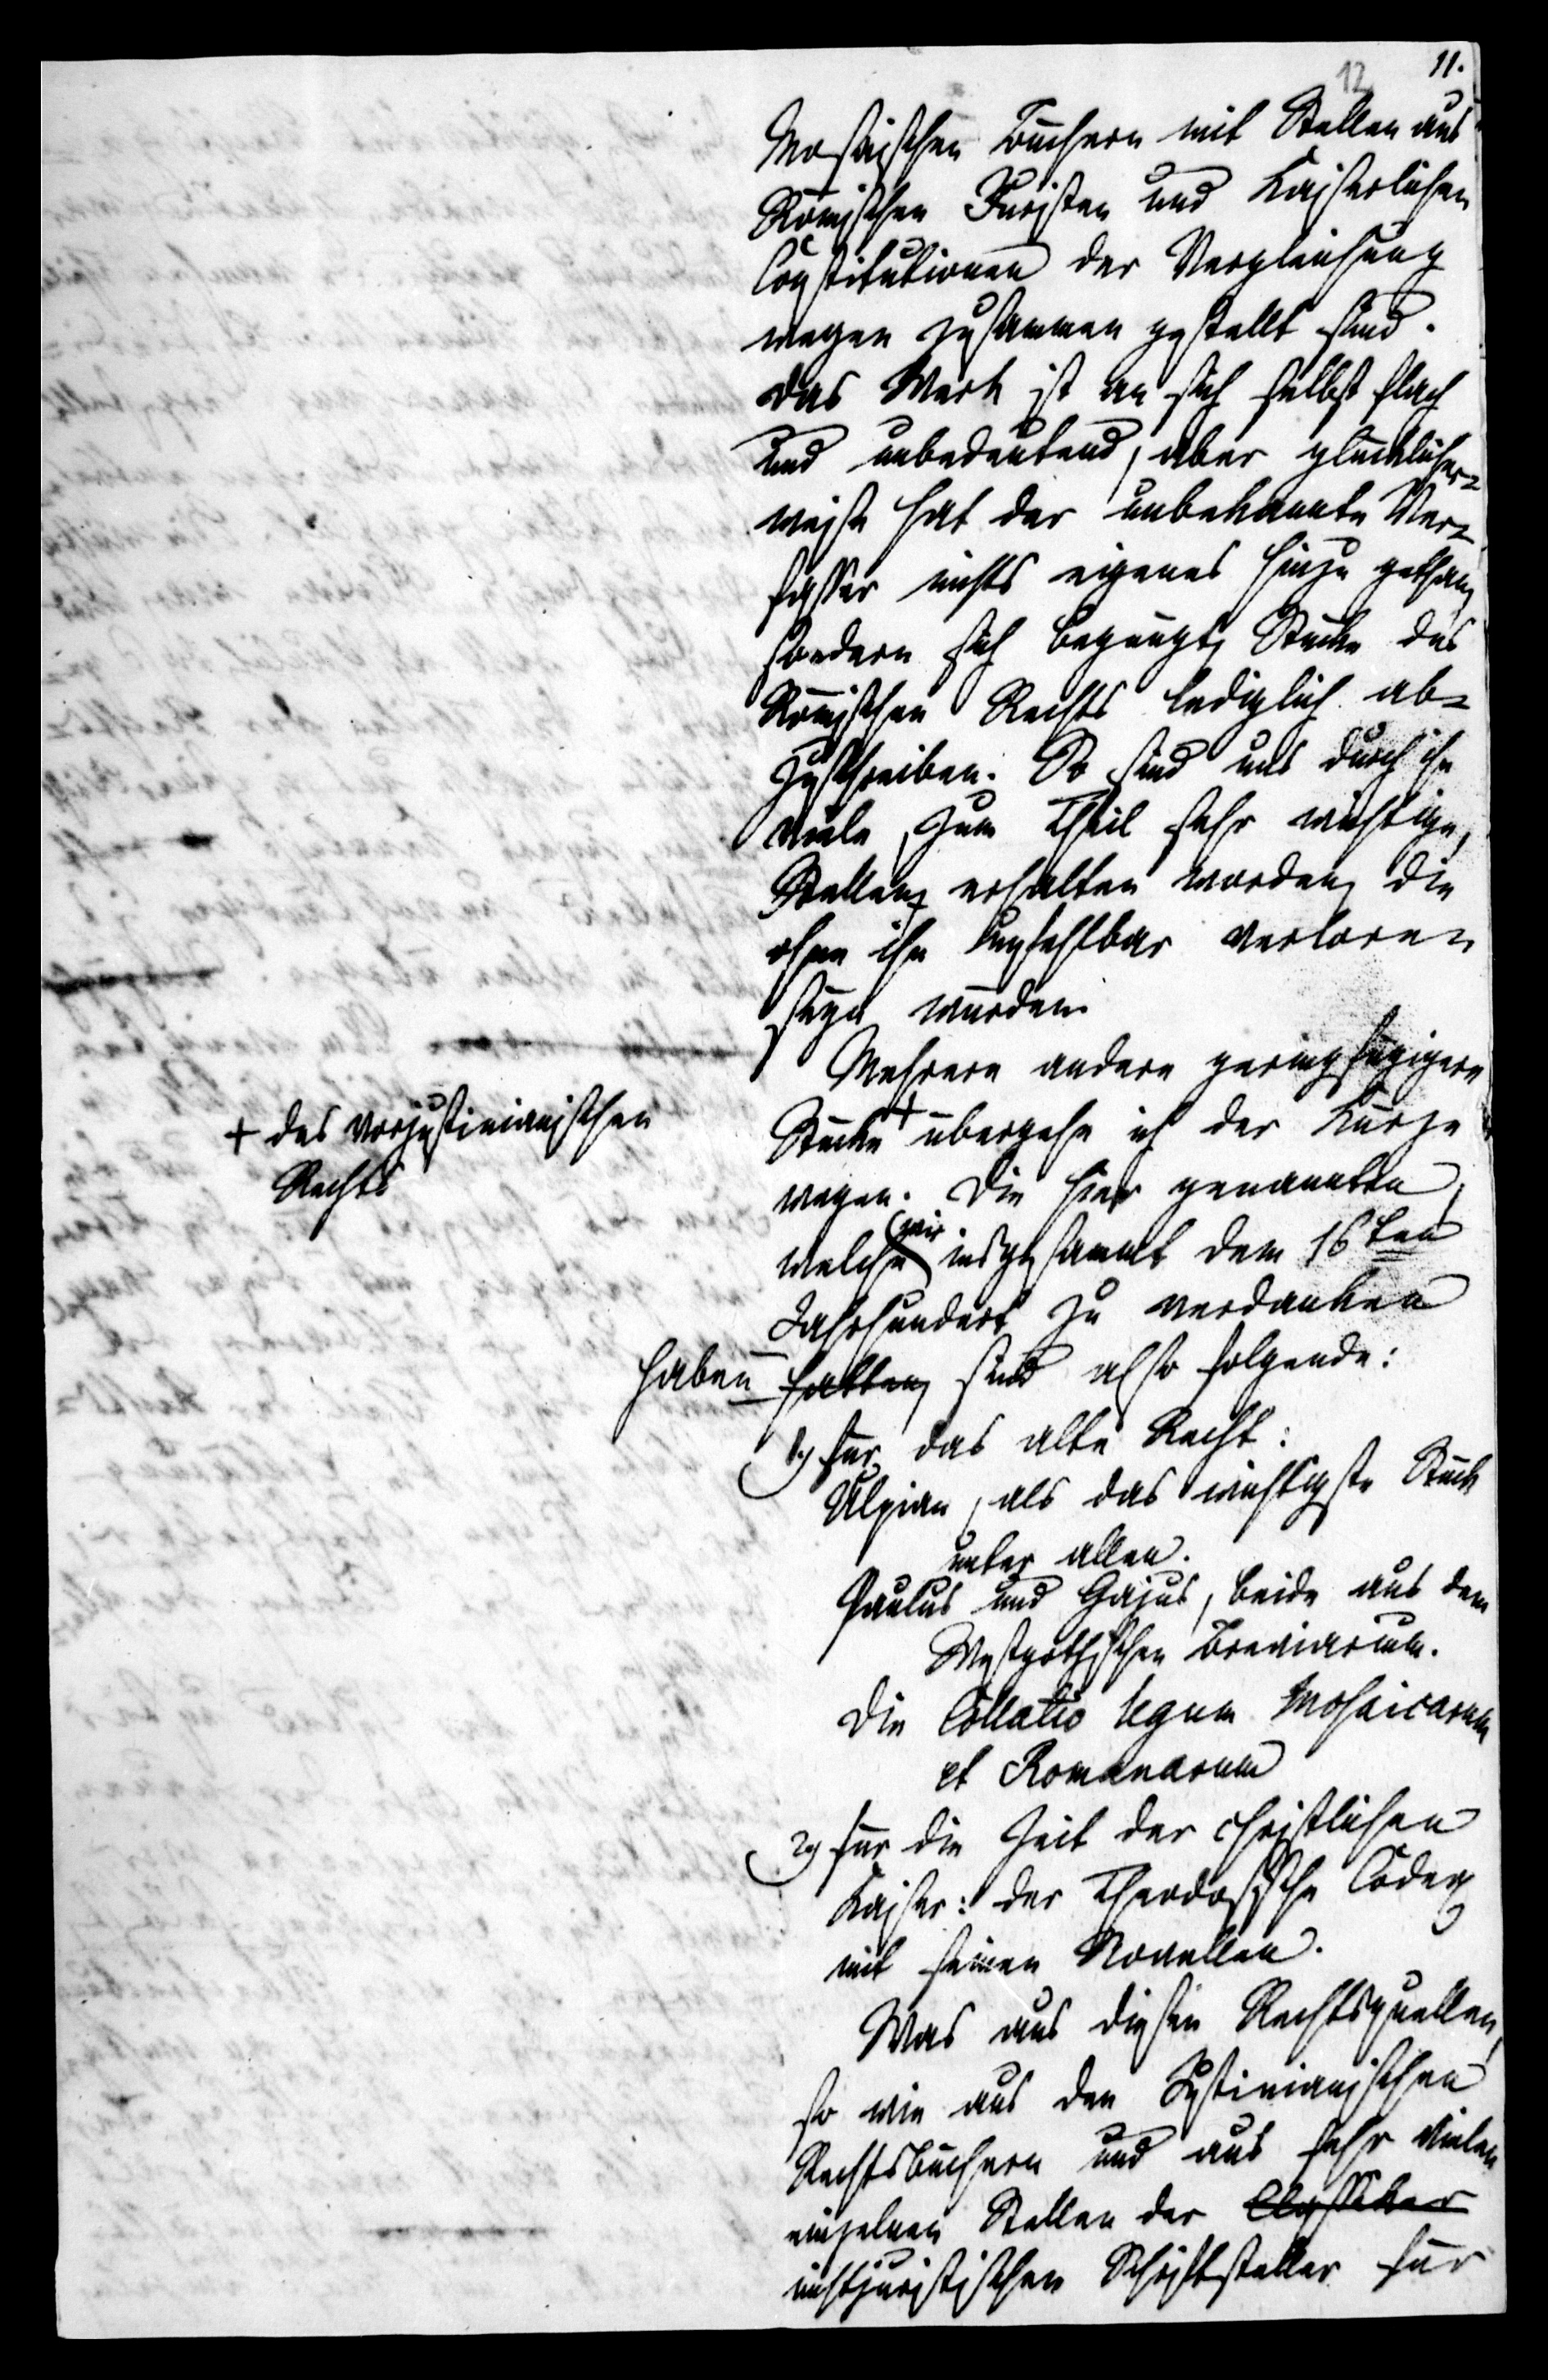 12 11.
Mosaischen Büchern mit Stellen aus
Römischen Juristen und Kaiserlichen
Constitutionen der Vergleichung
wegen zusammen gestellt sind.
Das Werk ist an sich selbst flach
und unbedeutend, aber glücklicher-
weise hat der unbekannte Ver-
fasser nichts eigenes hinzu gethan,
sondern sich begnügt, Stücke des
Römischen Rechts lediglich ab-
zuschreiben. So sind uns durch ihn
viele, zum Theil sehr wichtige,
Stellen erhalten worden, die
ohne ihn unfehlbar verloren
seyn würden.
Mehrere andere geringfügigere
Stücke + übergehe ich der Kürze
+ des vorjustinianischen
Rechts
wegen. Die hier genannten,
welche wir insgesammt dem 16ten
Jahrhundert zu verdanken
haben hatten, sind also folgende:
1.) für das alte Recht:
Ulpian, als das wichtigste Stück
unter allen.
Paulus und Gajus, beide aus dem
Westgothischen Breviarium.
Die Collatio legum Mosaicarum
et Romanarum
2.) für die Zeit der christlichen
Kaiser: der Theodosische Codex
mit seinen Novellen.
Was aus diesen Rechtsquellen,
so wie aus den Justinianischen
Rechtsbüchern und aus sehr vielen
einzelnen Stellen der Classiker
nichtjuristischen Schriftsteller für